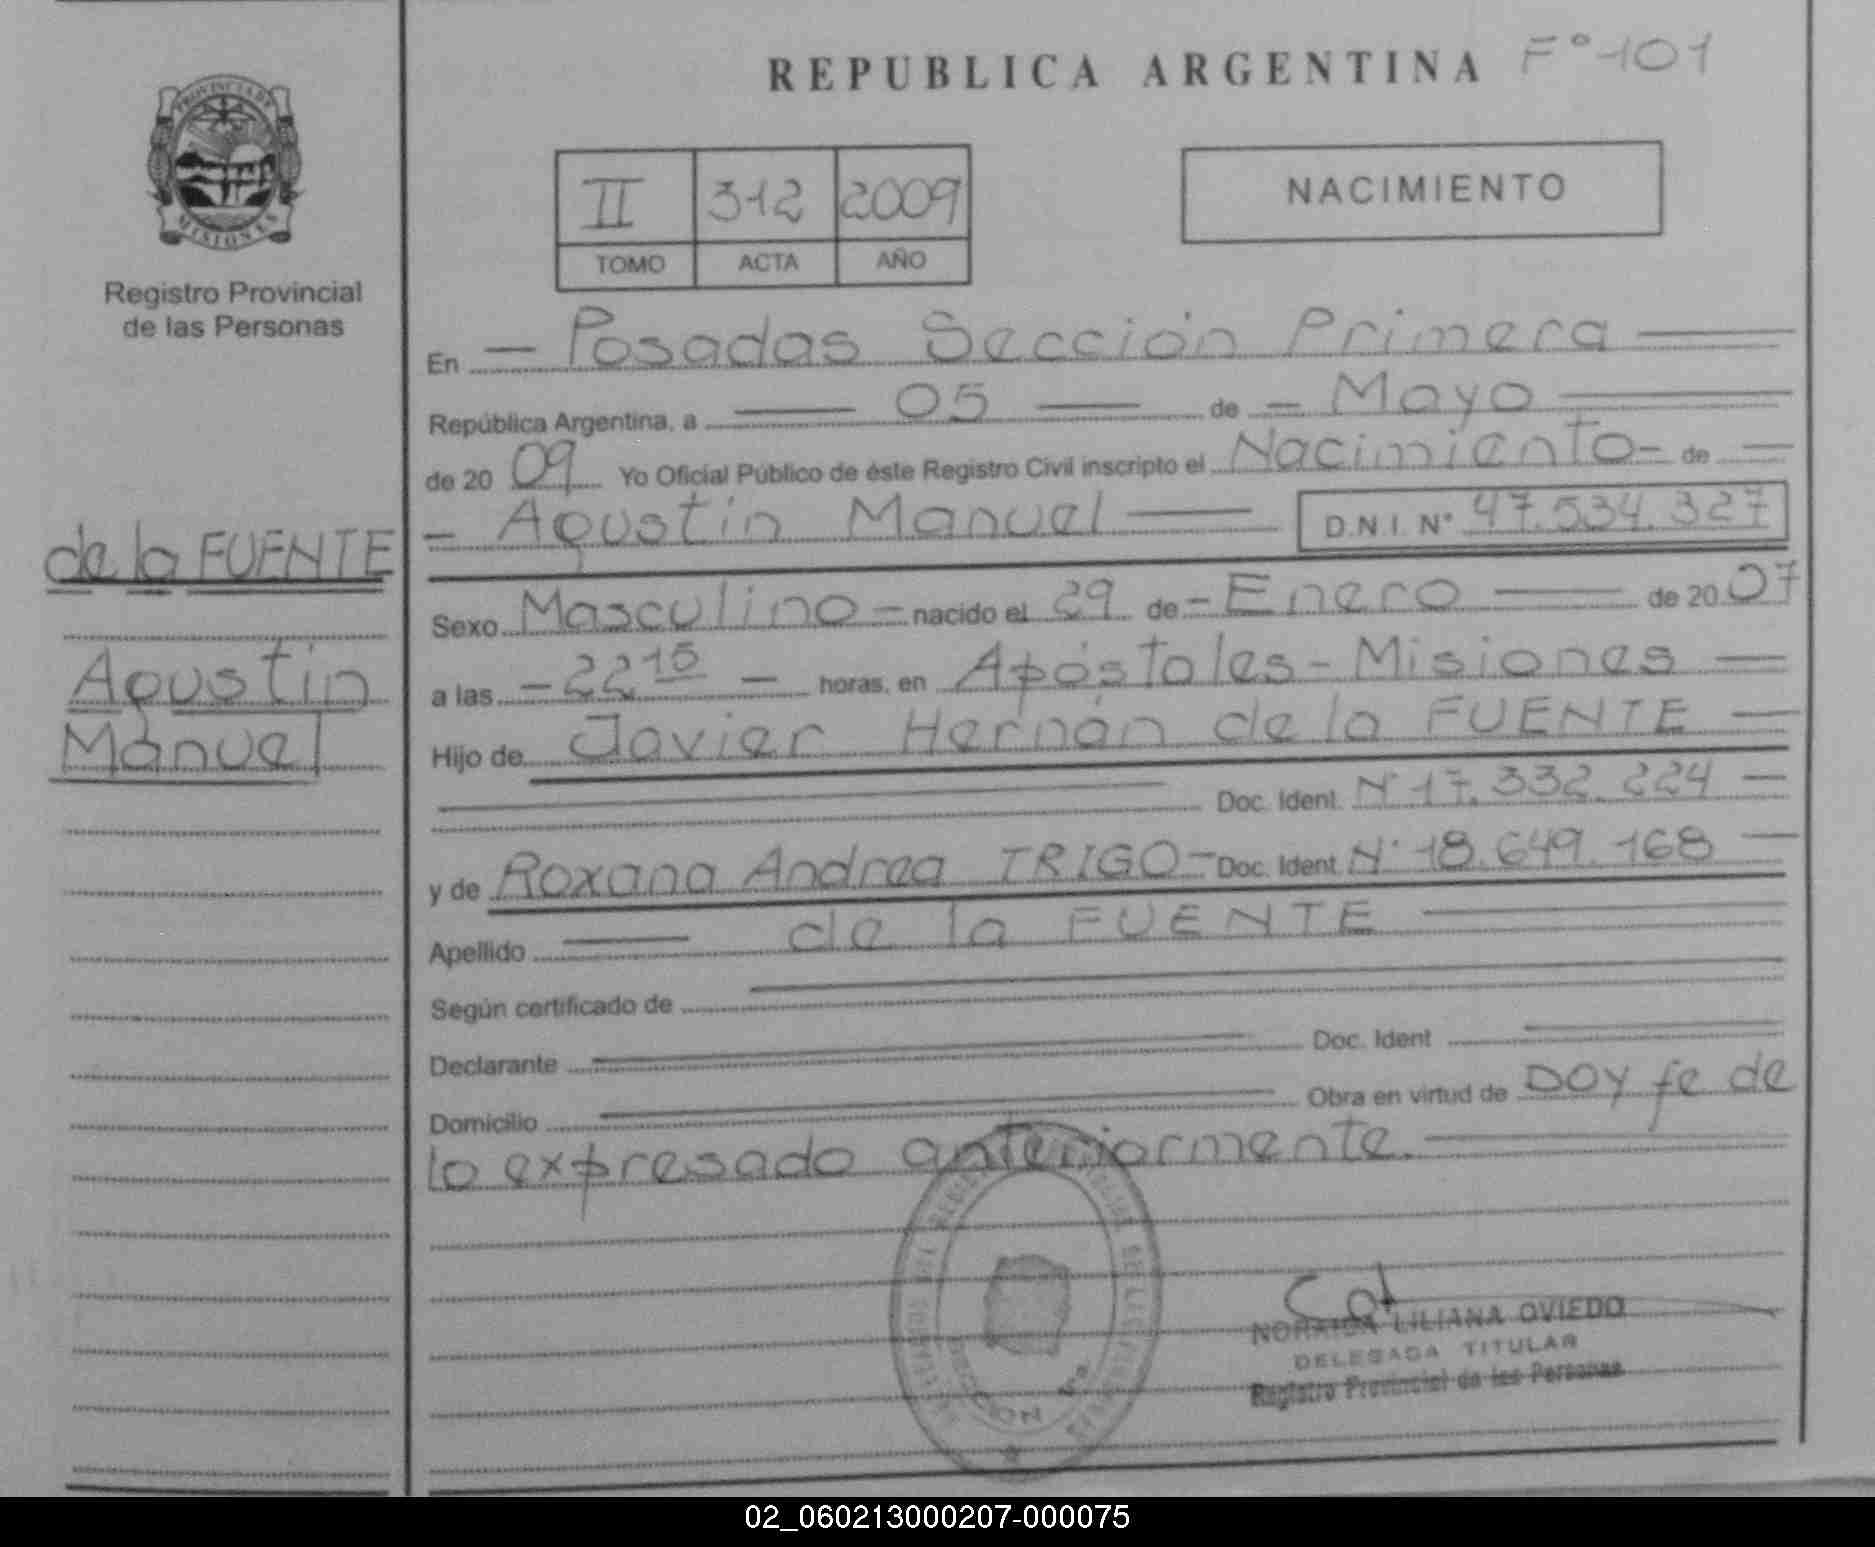 REPUBLICA ARGENTINA F° 101
PROVINCIA DE
MISIONES
Registro Provincial
de las Personas
II 312 2009
TOMO ACTA AÑO
NACIMIENTO
En Posadas Sección Primera
República Argentina, a 05 de Mayo
de 20 09 Yo Oficial Público de éste Registro Civil inscripto el Nacimiento de
Agustín Manuel D.N.I. N° 47.534.327
de la FUENTE
Agustín
Manuel
Sexo Masculino nacido el 29 de Enero de 20 07
a las 22 15 horas, en Apóstoles - Misiones
Hijo de Javier Hernán de la FUENTE
Doc. Ident. N° 17.332.224
y de Roxana Andrea TRIGO Doc. Ident. N° 18.649.168
Apellido de la FUENTE
Según certificado de
Declarante Doc. Ident
Domicilio Obra en virtud de DOY fe de
lo expresado anteriormente.
SECCION 1ª
LILIANA OVIEDO
DELEGADA TITULAR
Registro Provincial de las Personas
02_060213000207-000075